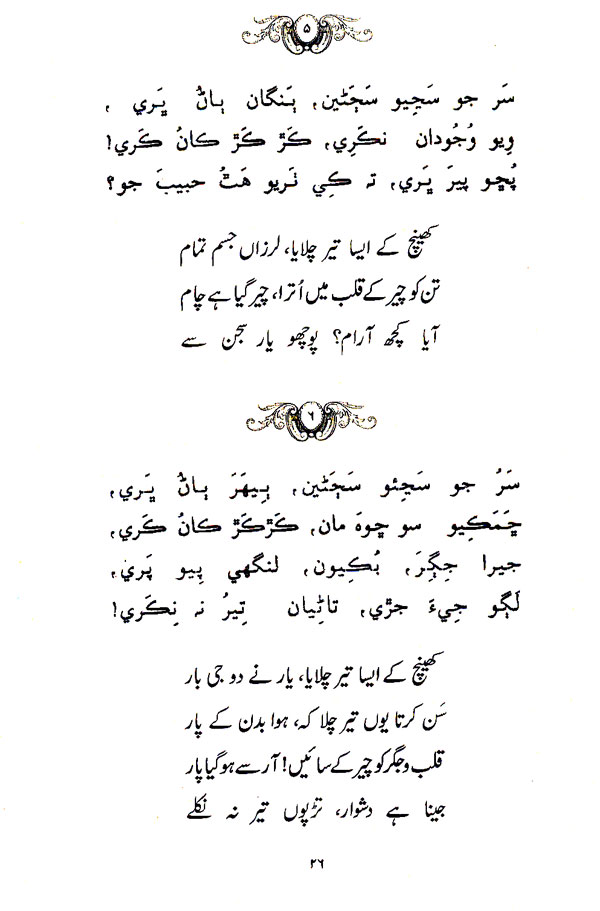 ۵
سَر جو سَڄِيو سَڄَڻين، ٻَنگان ٻاڻُ ڀَري ،
وِيو وُجُودان نڪَرِي، ڪَڙ ڪَڙ ڪانُ ڪَري!
پُڇو پيرَ ڀَري، تہ ڪِي ٺَريو هَٿُ حبيبَ جو؟
کھینچ کے ایسا تیر چلایا، لرزاں جسم تمام
تن کو چیر کے قلب میں اُترا، چیر گیا ہے چام
آیا کچھ آرام؟ پوچھو یار سجن سے
۶
سَرُ جو سَڄِئو سَڄَڻين، ٻِيهَرَ ٻاڻُ ڀَري،
ڇَمَڪِيو سو ڇوہَ مان، ڪَڙڪَڙ ڪانُ ڪَري،
جيرا جِگِرَ، بُڪِيون، لنگهي پِيو پَري،
لَڳو جِيءَ جڙي، تاڻِيان تِيرُ نہ نِڪَري!
کھینچ کے ایسا تیر چلایا، یار نے دو جی بار
سَن کرتا یوں تیر چلا کہ، ہوا بدن کے پار
قلب و جگر کو چیر کے سائیں! آر سے ہو گیا پار
جینا ہے دشوار، تڑپوں تیر نہ نکلے
۲۶